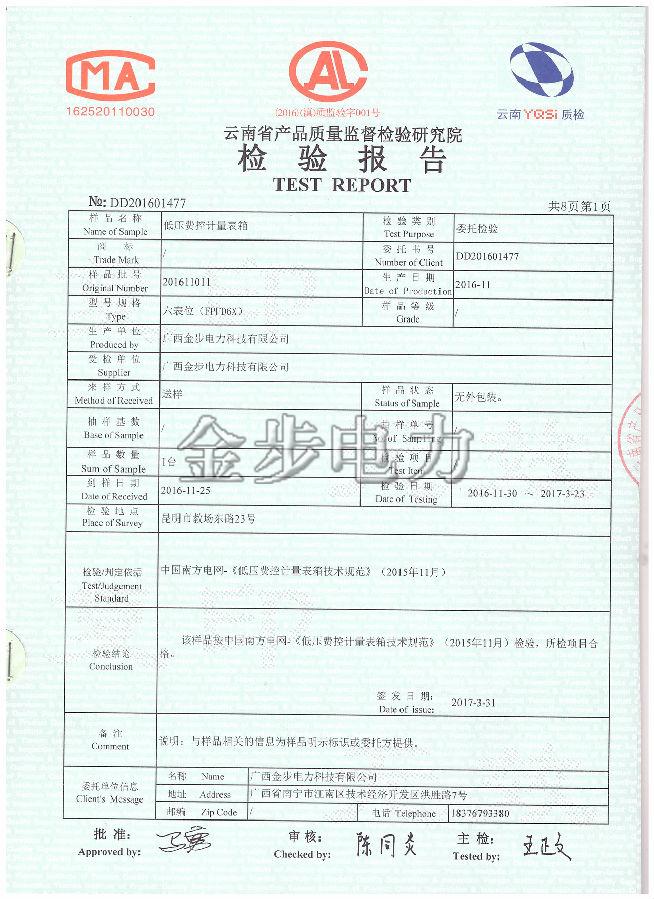 MA
162520110030
CAL
(2016)(滇)质监验字001号
云南 YQSi 质检
云南省产品质量监督检验研究院
检验报告
TEST REPORT
№: DD201601477
共8页第1页
样品名称 Name of Sample 低压费控计量表箱 检验类别 Test Purpose 委托检验
商标 Trade Mark / 委托书号 Number of Client DD201601477
样品批号 Original Number 201611011 生产日期 Date of Production 2016-11
型号规格 Type 六表位(FPFD6X) 样品等级 Grade /
生产单位 Produced by 广西金步电力科技有限公司
受检单位 Supplier 广西金步电力科技有限公司
来样方式 Method of Received 送样 样品状态 Status of Sample 无外包装。
抽样基数 Base of Sample / 抽样单号 No. of Sampling /
样品数量 Sum of Sample 1台 检验项目 Test Item /
金步电力
到样日期 Date of Received 2016-11-25 检验日期 Date of Testing 2016-11-30 ~ 2017-3-23
检验地点 Place of Survey 昆明市教场东路23号
检验/判定依据 Test/Judgement Standard 中国南方电网-《低压费控计量表箱技术规范》(2015年11月)
检验结论 Conclusion 该样品按中国南方电网-《低压费控计量表箱技术规范》(2015年11月)检验,所检项目合
格。
签发日期: Date of issue: 2017-3-31
备注 Comment 说明:与样品相关的信息为样品明示标识或委托方提供。
委托单位信息 Client's Message
名称 Name 广西金步电力科技有限公司
地址 Address 广西省南宁市江南区技术经济开发区洪胜路7号
邮编 Zip Code / 电话 Telephone 18376793380
批准: Approved by: 审核: Checked by: 陈同炎 主检: Tested by: 王政文